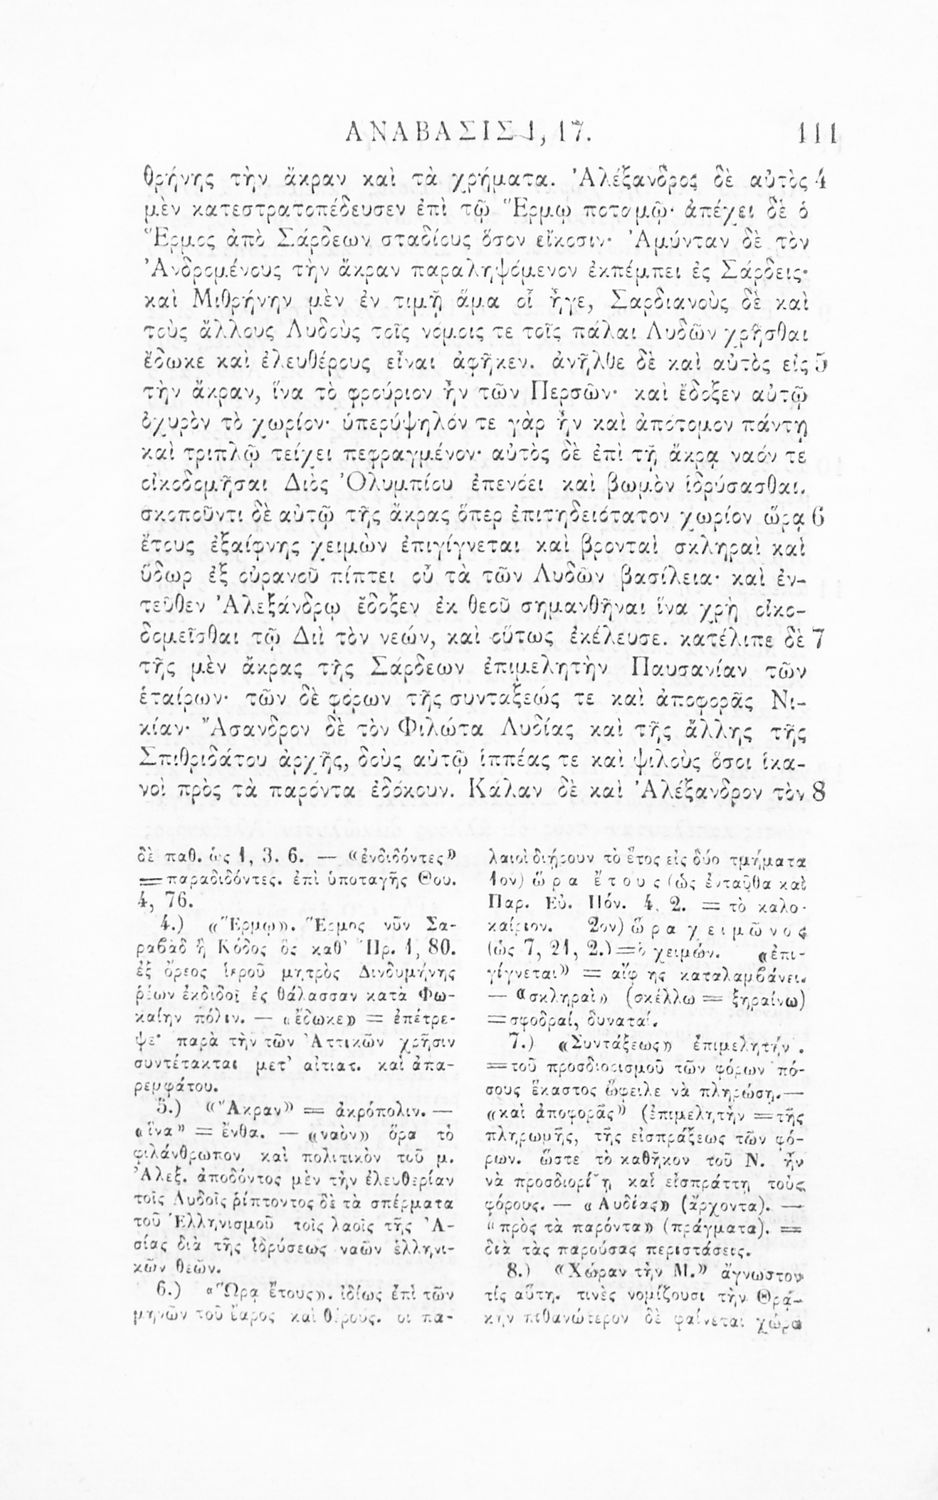 ΑΝΑΒΑΣΙΣ 1, 17. 111
θρήνης τὴν ἄκραν καὶ τὰ χρήματα. Ἀλέξανδρος δὲ αὐτὸς 4
μὲν κατεστρατοπέδευσεν ἐπὶ τῷ Ἕρμῳ ποταμῷ· ἀπέχει δὲ ὁ
Ἕρμος ἀπὸ Σάρδεων σταδίους ὅσον εἴκοσιν· Ἀμύνταν δὲ τὸν
Ἀνδρομένους τὴν ἄκραν παραληψόμενον ἐκπέμπει ἐς Σάρδεις·
καὶ Μιθρήνην μὲν ἐν τιμῇ ἅμα οἷ ἦγε, Σαρδιανοὺς δὲ καὶ
τοὺς ἄλλους Λυδοὺς τοῖς νόμοις τε τοῖς πάλαι Λυδῶν χρῆσθαι
ἔδωκε καὶ ἐλευθέρους εἶναι ἀφῆκεν. ἀνῆλθε δὲ καὶ αὐτὸς εἰς 5
τὴν ἄκραν, ἵνα τὸ φρούριον ἦν τῶν Περσῶν· καὶ ἔδοξεν αὐτῷ
ὀχυρὸν τὸ χωρίον· ὑπερύψηλόν τε γὰρ ἦν καὶ ἀπότομον πάντῃ
καὶ τριπλῷ τείχει πεφραγμένον· αὐτὸς δὲ ἐπὶ τῇ ἄκρᾳ ναόν τε
οἰκοδομῆσαι Διὸς Ὀλυμπίου ἐπενόει καὶ βωμὸν ἱδρύσασθαι.
σκοποῦντι δὲ αὐτῷ τῆς ἄκρας ὅπερ ἐπιτηδειότατον χωρίον ὥρᾳ 6
ἔτους ἐξαίφνης χειμὼν ἐπιγίγνεται καὶ βρονταὶ σκληραὶ καὶ
ὕδωρ ἐξ οὐρανοῦ πίπτει οὗ τὰ τῶν Λυδῶν βασίλεια· καὶ ἐν-
τεῦθεν Ἀλεξάνδρῳ ἔδοξεν ἐκ θεοῦ σημανθῆναι ἵνα χρὴ οἰκο-
δομεῖσθαι τῷ Διὶ τὸν νεών, καὶ οὕτως ἐκέλευσε. κατέλιπε δὲ 7
τῆς μὲν ἄκρας τῆς Σάρδεων ἐπιμελητὴν Παυσανίαν τῶν
ἑταίρων· τῶν δὲ φόρων τῆς συντάξεώς τε καὶ ἀποφορᾶς Νι-
κίαν· Ἄσανδρον δὲ τὸν Φιλώτα Λυδίας καὶ τῆς ἄλλης τῆς
Σπιθριδάτου ἀρχῆς, δοὺς αὐτῷ ἱππέας τε καὶ ψιλοὺς ὅσοι ἱκα-
νοὶ πρὸς τὰ παρόντα ἐδόκουν. Κάλαν δὲ καὶ Ἀλέξανδρον τὸν 8
δὲ παθ. ὡς 1, 3. 6. — «ἐνδιδόντες»
= παραδιδόντες. ἐπὶ ὑποταγῆς Θου.
4, 76.
4.) «Ἕρμῳ». Ἕρμος νῦν Σα-
ραβὰδ ἢ Κόδος ὃς καθ' Ἡρ. 1, 80.
ἐξ ὄρεος ἱεροῦ μητρὸς Δινδυμήνης
ῥέων ἐκδιδοῖ ἐς θάλασσαν κατὰ Φω-
καίην πόλιν. — «ἔδωκε» = ἐπέτρε-
ψε· παρὰ τὴν τῶν Ἀττικῶν χρῆσιν
συντέτακται μετ' αἰτιατ. καὶ ἀπα-
ρεμφάτου.
5.) «Ἄκραν» = ἀκρόπολιν. —
«ἵνα» = ἔνθα. — «ναὸν» ὅρα τὸ
φιλάνθρωπον καὶ πολιτικὸν τοῦ μ.
Ἀλεξ. ἀποδόντος μὲν τὴν ἐλευθερίαν
τοῖς Λυδοῖς ῥίπτοντος δὲ τὰ σπέρματα
τοῦ Ἑλληνισμοῦ τοῖς λαοῖς τῆς Ἀ-
σίας διὰ τῆς ἱδρύσεως ναῶν ἑλληνι-
κῶν θεῶν.
6.) «Ὥρᾳ ἔτους». ἰδίως ἐπὶ τῶν
μηνῶν τοῦ ἔαρος καὶ θέρους. οἱ πα-
λαιοὶ διῄρουν τὸ ἔτος εἰς δύο τμήματα
1ον) ὥρα ἔτους (ὡς ἐνταῦθα καὶ
Παρ. Εὐ. Πόν. 4. 2. = τὸ καλο-
καίριον. 2ον) ὥρα χειμῶνος
(ὡς 7, 21, 2.) = ὁ χειμών. «ἐπι-
γίγνεται» = αἴφνης καταλαμβάνει.
— «σκληραὶ» (σκέλλω = ξηραίνω)
= σφοδραί, δυναταί.
7.) «Συντάξεως» ἐπιμελητὴν.
= τοῦ προσδιορισμοῦ τῶν φόρων πό-
σους ἕκαστος ὤφειλε νὰ πληρώσῃ. —
«καὶ ἀποφορᾶς» (ἐπιμελητὴν = τῆς
πληρωμῆς, τῆς εἰσπράξεως τῶν φό-
ρων. ὥστε τὸ καθῆκον τοῦ Ν. ἦν
νὰ προσδιορίζῃ καὶ εἰσπράττῃ τοὺς
φόρους. — «Λυδίας» (ἄρχοντα). —
«πρὸς τὰ παρόντα» (πράγματα). =
διὰ τὰς παρούσας περιστάσεις.
8.) «Χώραν τὴν Μ.» ἄγνωστον
τίς αὕτη. τινὲς νομίζουσι τὴν Θρᾴ-
κην πιθανώτερον δὲ φαίνεται χώρα